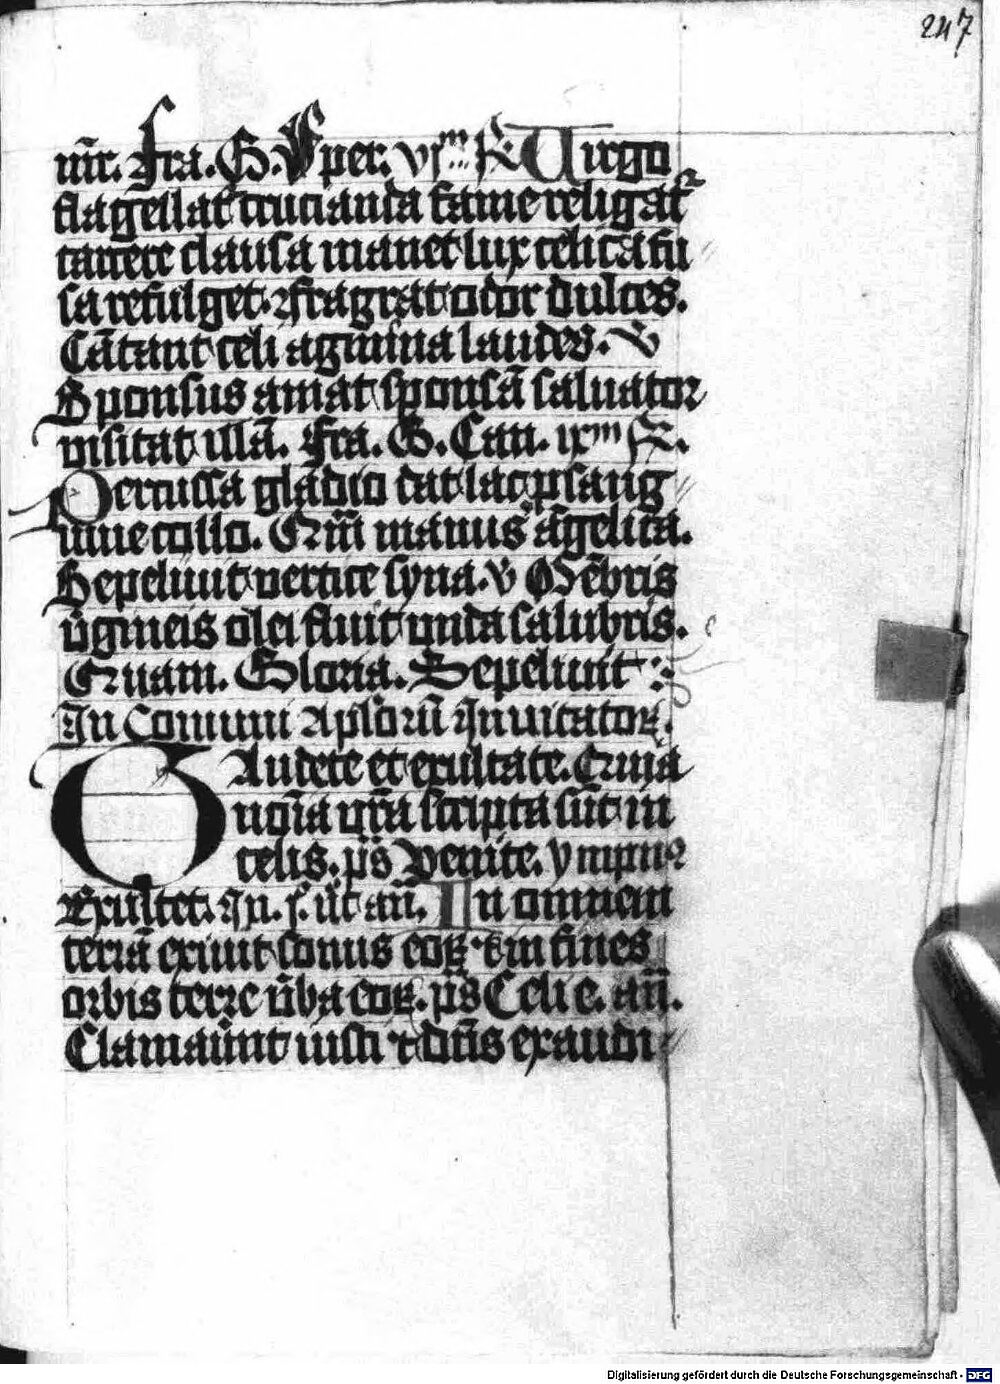 247
nr̄r. Fra. G. V per. vjᵐ R Virgo
flagellat᷑ crucianda fame religat᷑
carcere clausa manet lux celica fu
sa refulget. fragrat odor dulces.
Cātant celi agmina laudes. V
Sponsus amat sponsā saluator
visitat illā. Fra. G. Can. ixᵐ R.
Percussa gladio dat lac ꝓ sang
uine collo. Quā manus āgelica.
Sepeliuit vertice syna. V Mēbris
v̄gineis olei fluit vnda salubris.
Quam. Gloria. Sepeliuit
In Comuni aplorū Inuitatoꝝ.
Gaudete et exultate. Quia
noīa vr̄a scripta sūt in
celis. ps̄ Venite. ympnꝰ
Exultet. In. j. n̄t an̄. In omnem
terrā exiuit sonus eoꝝ. et in fines
orbis terre v̄ba eoꝝ. ps̄ Celi e. an̄.
Clamauer̄nt iusti et dn̄s exaudi
Digitalisierung gefördert durch die Deutsche Forschungsgemeinschaft - DFG